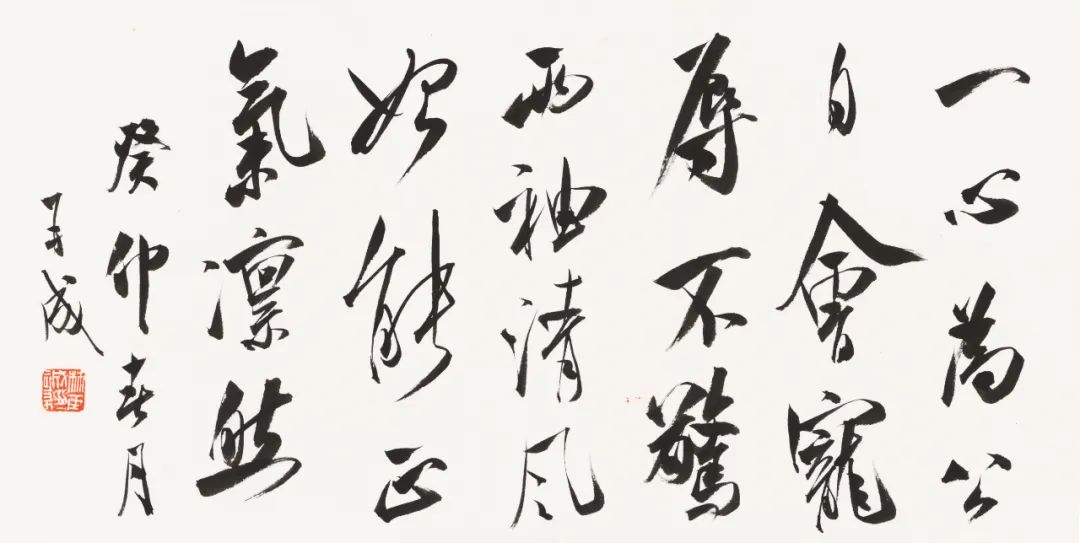 一心為公
自會寵
辱不驚
两袖清風
始能正
氣凛然
癸卯春月
成